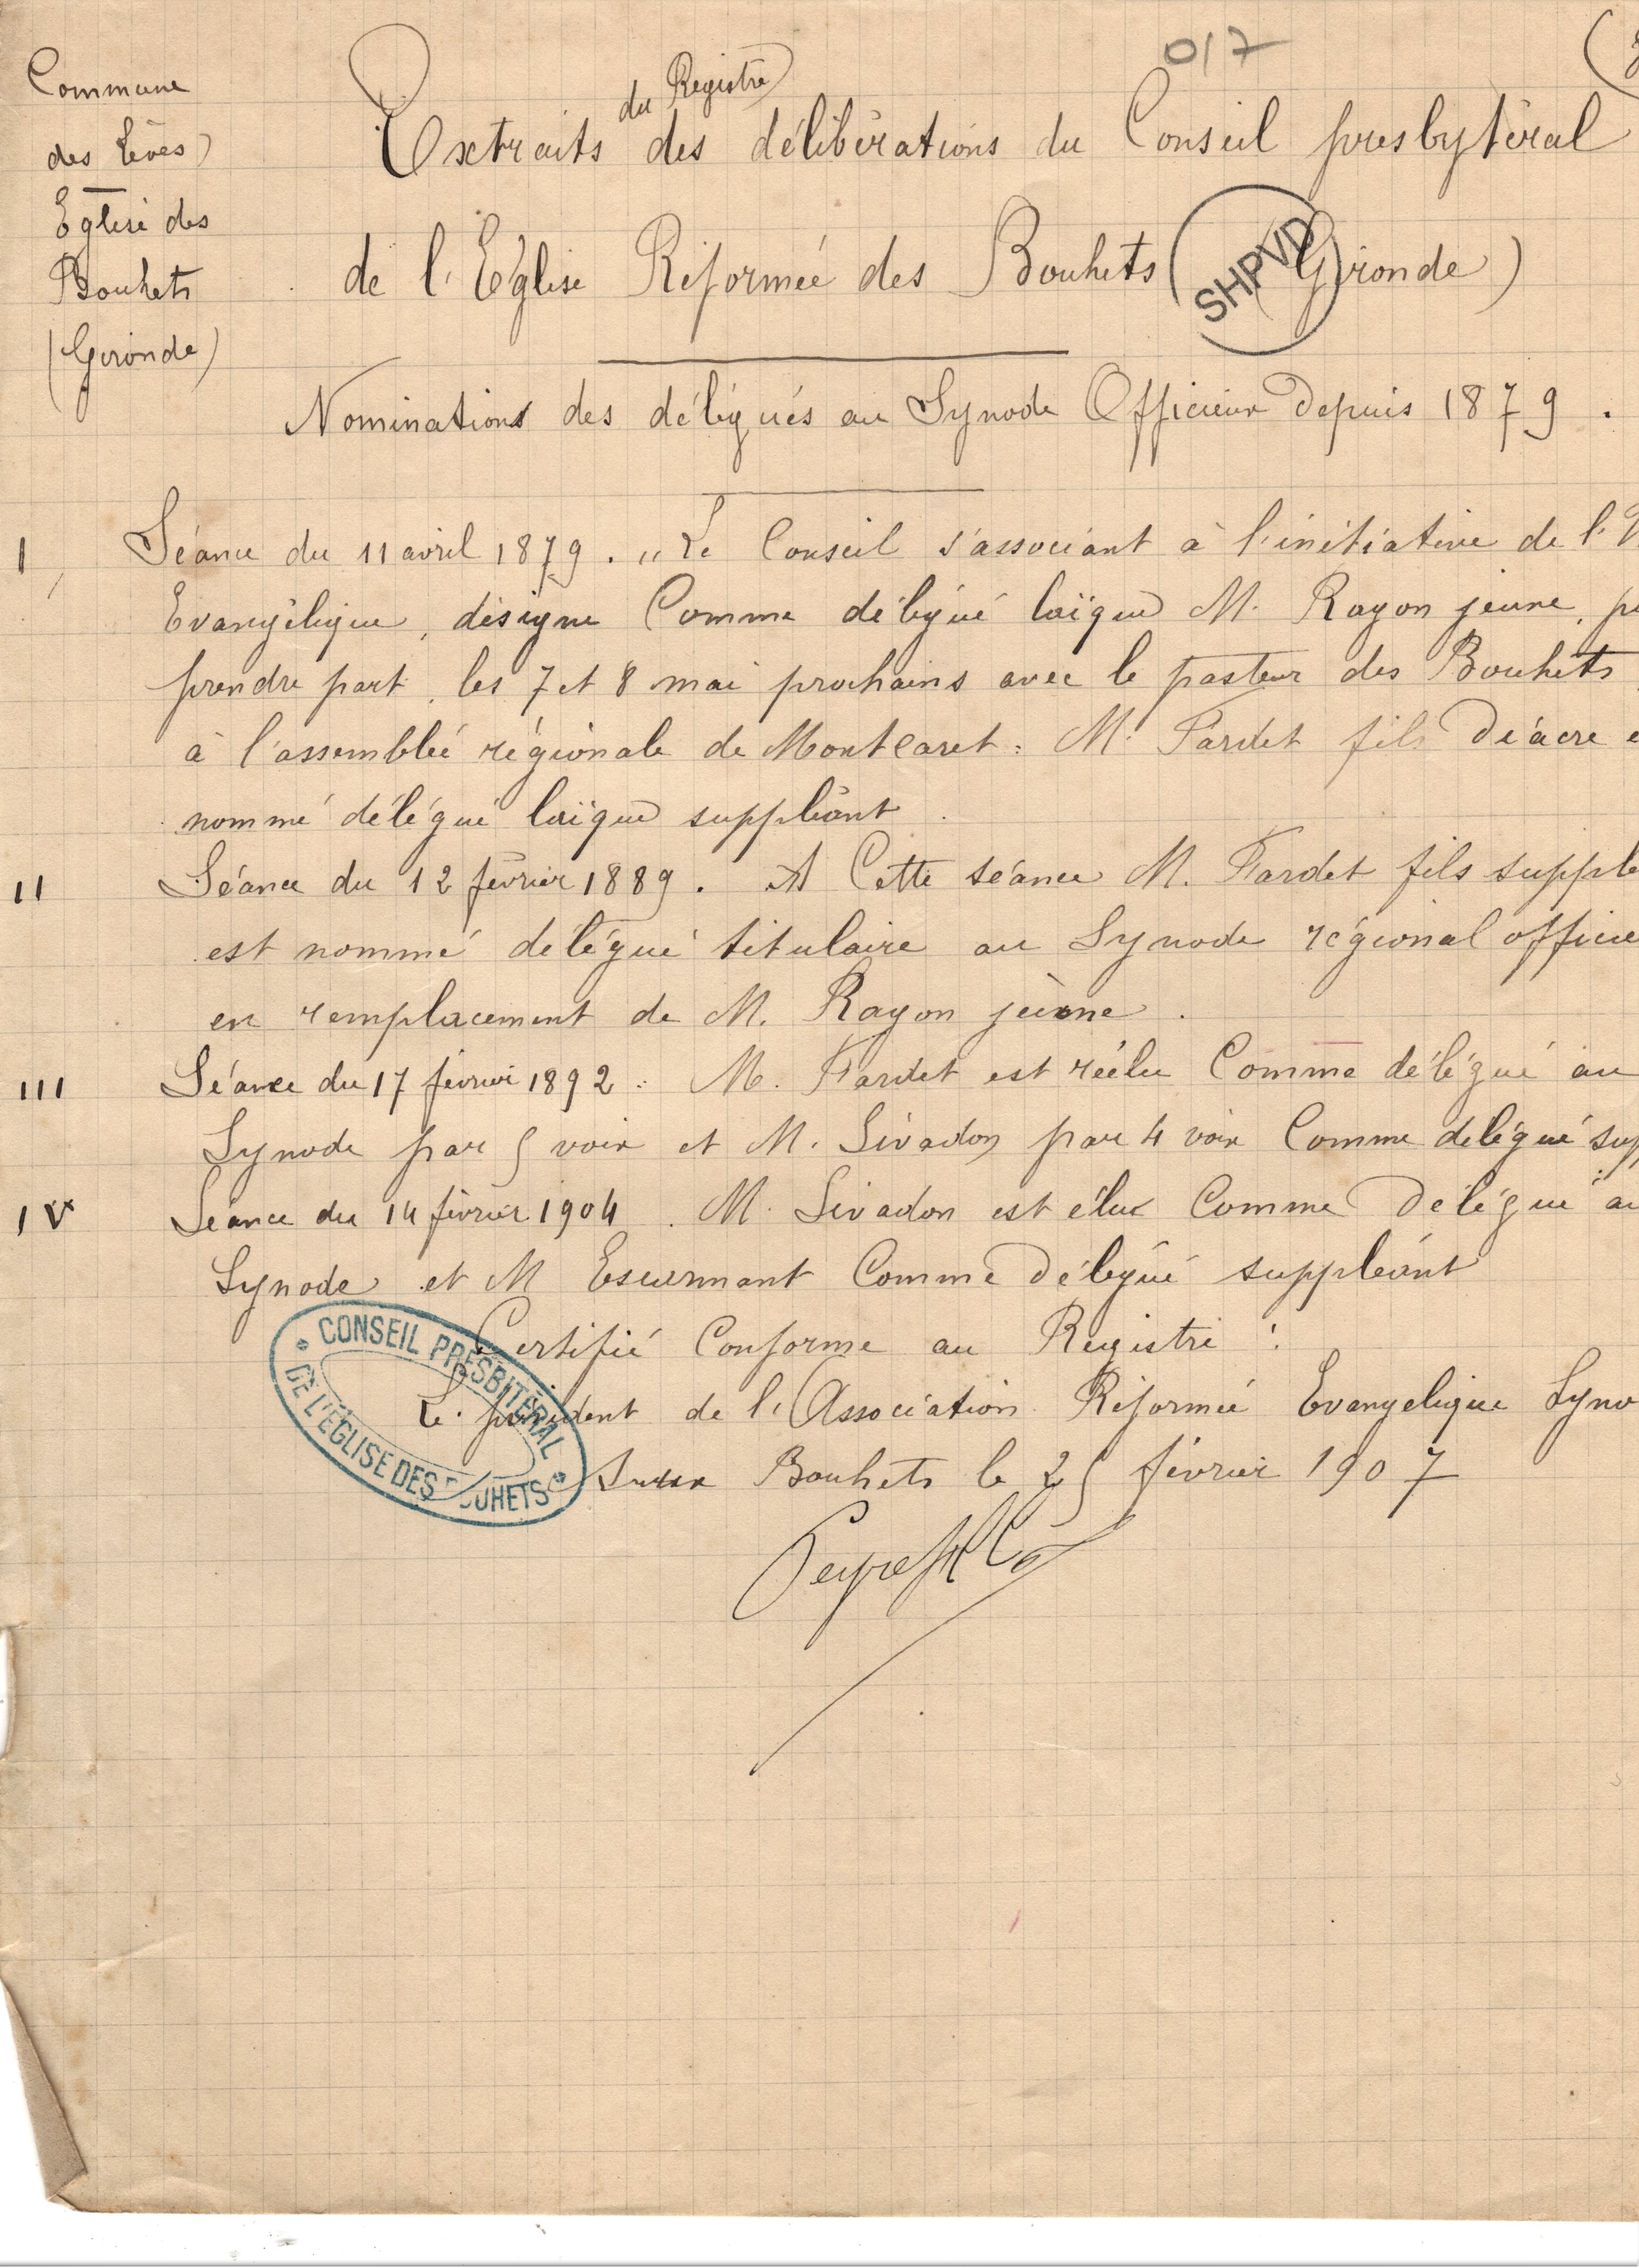 017
Commune
des Lèves
Eglise des
Bouhets
(Gironde)
du Registre
Extraits des délibérations du Conseil presbytéral
de l'Eglise Réformée des Bouhets (Gironde)
SHPVD
Nominations des délégués au Synode Officieux Depuis 1879.
I Séance du 11 avril 1879. "Le Conseil s'associant à l'initiative de l'
Evangélique, désigne Comme délégué laïque M. Rayon jeune,
prendre part, les 7 et 8 mai prochains avec le pasteur des Bouhets
à l'assemblée régionale de Montcaret: M. Fardet fils Diacre
nommé délégué laïque suppléant.
II Séance du 12 février 1889. A Cette séance M. Fardet fils supplé
est nommé délégué titulaire au Synode régional officie
en remplacement de M. Rayon jeune.
III Séance du 17 février 1892: M. Fardet est réélu Comme délégué au
Synode par 5 voix et M. Sivadon par 4 voix Comme délégué sup
IV Séance du 14 février 1904. M. Sivadon est élu Comme Délégué au
Synode et M Escurmant Comme Délégué suppléant
Certifié Conforme au Registre:
Le président de l'Association Réformée Evangélique Syno
Bouhets le 25 février 1907
CONSEIL PRESBITÉRAL
DE L'ÉGLISE DES BOUHETS